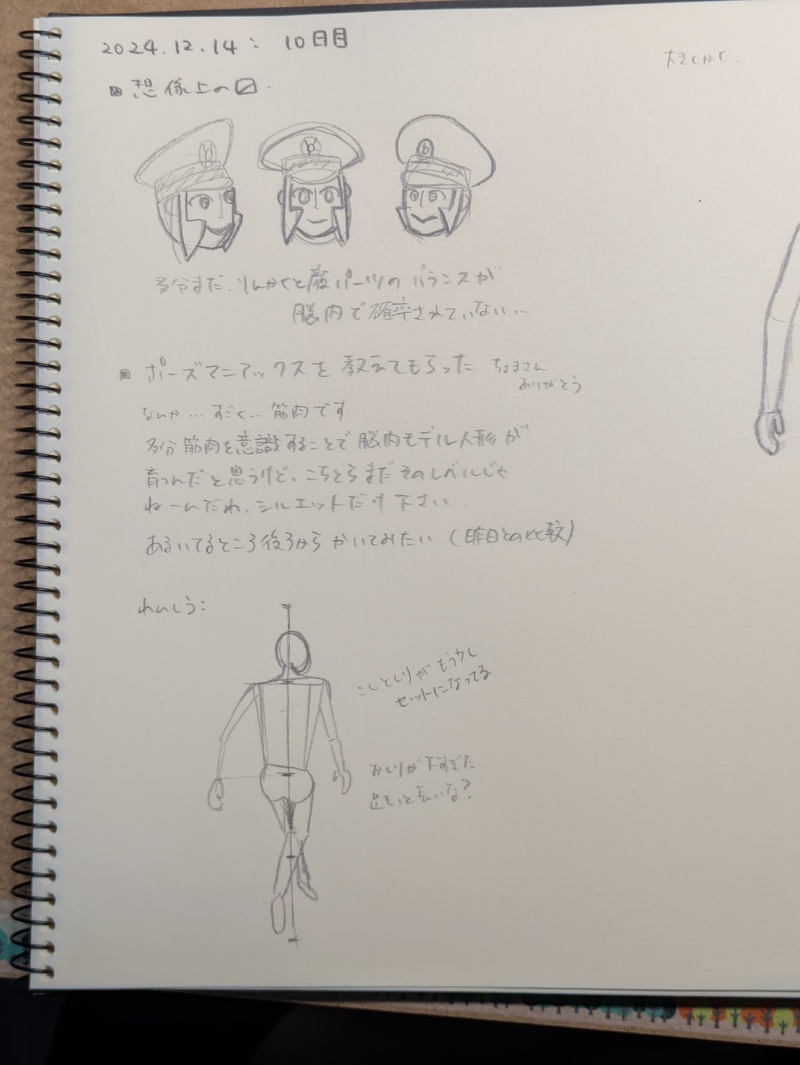 2024.12.14： 10日目
想像上の〼.
多分まだ、りんかくと顔パーツのバランスが
脳内で確率されていない…
ポーズマニアックスを教えてもらった
ちょまさん
ありがとう
なんか… すごく… 筋肉です
多分筋肉を意識することで脳内モデル人形が
育つんだと思うけど、こちとらまだそのレベルじゃ
ねーんだわ、シルエットだけ下さい.
あるいてるところ後ろからかいてみたい (昨日との比較)
れんしう：
こしとしりがもう少し
セットになってる
おしりが下すぎた
足もっと長いな?
大きくかく.